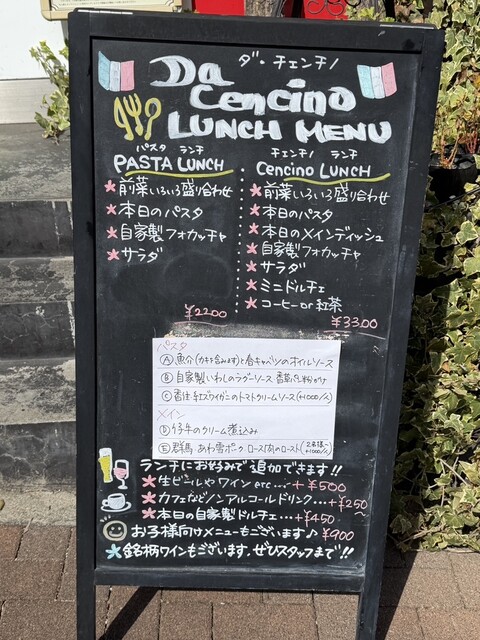 ダ・チェンチノ
Da
Cencino
LUNCH MENU
パスタ ランチ
PASTA LUNCH
★前菜いろいろ盛り合わせ
★本日のパスタ
★自家製フォカッチャ
★サラダ
¥2200
チェンチノ ランチ
Cencino LUNCH
★前菜いろいろ盛り合わせ
★本日のパスタ
★本日のメインディッシュ
★自家製フォカッチャ
★サラダ
★ミニドルチェ
★コーヒーor紅茶
¥3300
パスタ
Ⓐ魚介(カキも含みます)と春キャベツのオイルソース
Ⓑ自家製いわしのラグーソース 香草パン粉がけ
Ⓒ香住紅ズワイガニのトマトクリームソース(+1000/人)
メイン
Ⓓ仔牛のクリーム煮込み
Ⓔ群馬 あわ雪ポーク ロース肉のロースト(2名様〜 +1000/人)
ランチにお好みで追加できます!!
★生ビールやワイン etc…+¥500
★カフェなどノンアルコールドリンク…+¥250〜
★本日の自家製ドルチェ…+¥450
お子様向けメニューもございます♪ ¥900
★銘柄ワインもございます。ぜひスタッフまで!!